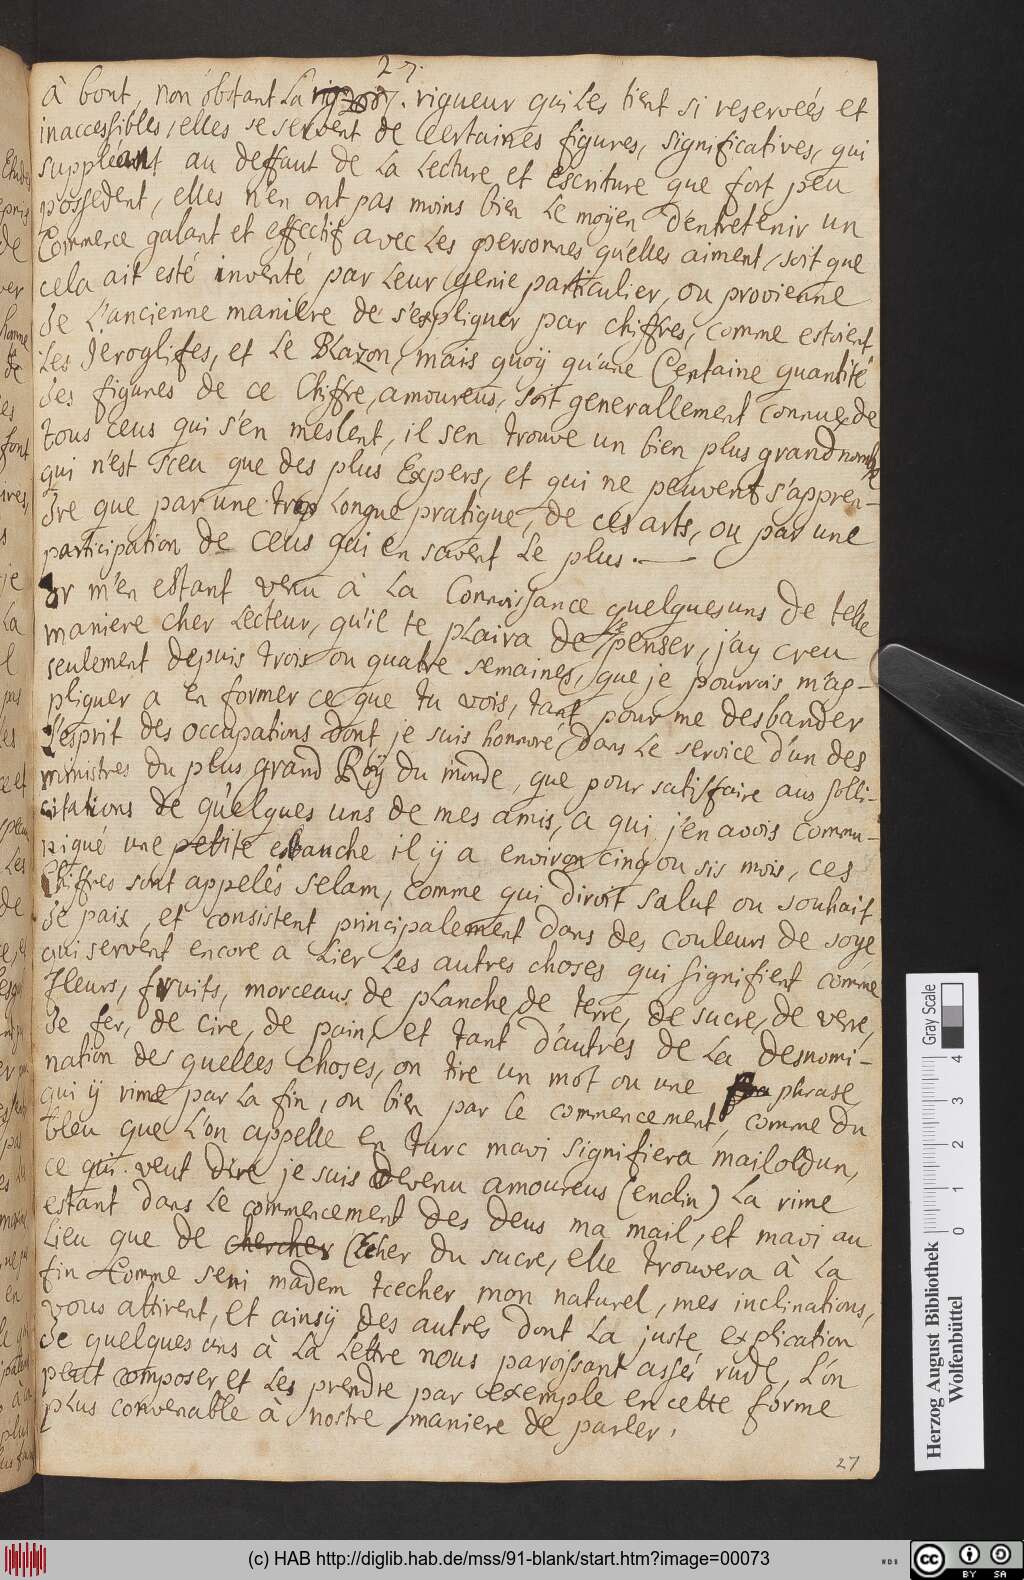 27.
à bout, non óbstant La vigueur qui Les tient si reserveés et
inaccessibles, elles se servent de certaines figures, significatives, qui
suppléant au deffaut de La Lecture et escriture que fort peu
possedent, elles n'en ont pas moins bien Le moÿen d'entretenir un
Commerce galant et effectif avec Les personnes qu'elles aiment, soit que
cela ait esté inventé par Leur genie particulier, ou provienne
de L'ancienne maniere de s'expliquer par chiffres, comme estoient
Les Jeroglifes, et Le Blazon, mais quoÿ qu'une Certaine quantité
des figures de ce Chiffre, amoureus, soit generallement connue de
tous ceus qui s'en meslent, il sen trouve un bien plus grand nombre
qui n'est sceu que des plus Expers, et qui ne peuvent s'appren-
dre que par une trop Longue pratique, de ces arts, ou par une
participation de ceus qui en savent Le plus.
or m'en estant venu à La Connoissance quelquesuns de telle
maniere cher Lecteur, qu'il te plaira de le penser, j'ay creu
seulement depuis trois ou quatre semaines, que je pourrois m'ap-
pliquer a en former ce que tu vois, tant pour me desbander
L'esprit des occupations dont je suis honnoré dans Le service d'un des
ministres du plus grand Roÿ du monde, que pour satisfaire aus solli-
citations de quelques uns de mes amis, a qui j'en avois commu-
niqué une petite esbauche il ÿ a environ cinq ou sis mois, ces
Chiffres sont appelés selam, comme qui diroit salut ou souhait
de paix, et consistent principalement dans des couleurs de soye
qui servent encore a Lier Les autres choses qui signifient comme
fleurs, fruits, morceaus de planche, de terre, de sucre, de verre,
de fer, de cire, de pain, et tant d'autres de La desnomi-
nation des quelles choses, on tire un mot ou une phrase
qui ÿ rime par La fin, ou bien par le commencement, comme du
bleu que L'on appelle en turc mavi signifiera mailoldun,
ce qui veut dire je suis devenu amoureus (enclin) La rime
estant dans Le commencement des deus ma mail, et mavi au
Lieu que de chercher Cheker du sucre, elle trouvera à La
fin comme seni madem tcecher mon naturel, mes inclinations,
vous attirent, et ainsÿ des autres dont La juste explication
de quelques uns à La Lettre nous paroissant assés rude, L'on
peut composer et Les prendre par exemple en cette forme
plus convenable à nostre maniere de parler.
27
Gray Scale
4
3
2
1
0
Herzog August Bibliothek
Wolfenbüttel
(c) HAB http://diglib.hab.de/mss/91-blank/start.htm?image=00073
WDB
cc BY SA